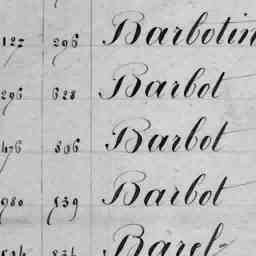 127 296 Barbotin
296 628 Barbot
476 806 Barbot
980 539 Barbot
Barel